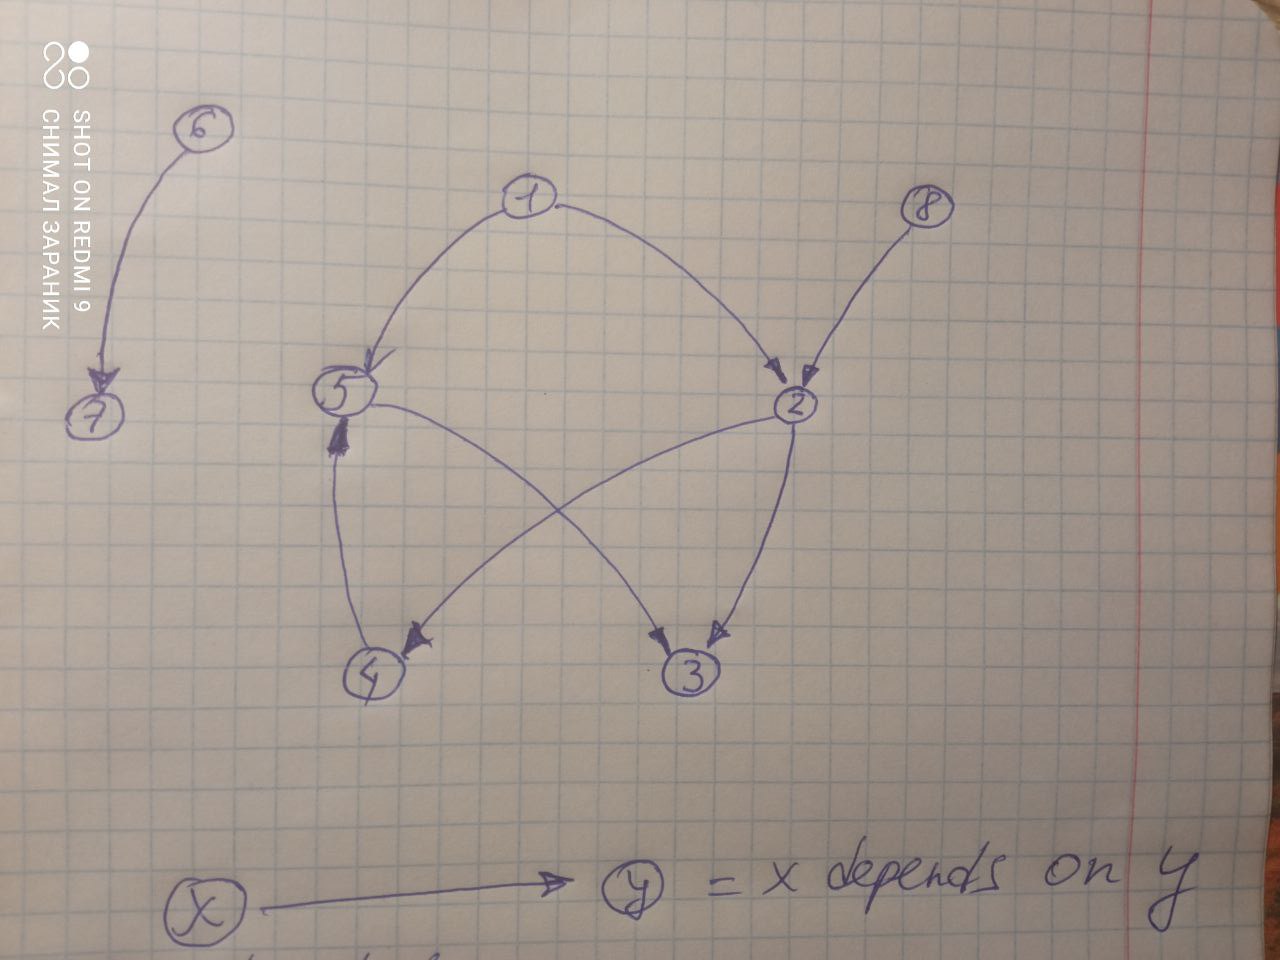 SHOT ON REDMI 9
СНИМАЛ ЗАРАНИК
6
1
8
5
2
7
4
3
x y = x depends on y